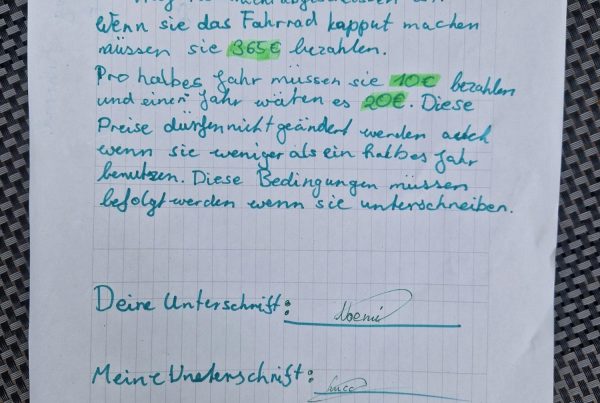 Wenn sie das Fahrrad kapput machen
müssen sie 365€ bezahlen.
Pro halbes Jahr müssen sie 10€ bezahlen
und einen Jahr wären es 20€. Diese
Preise dürfen nicht geändert werden auch
wenn sie weniger als ein halbes Jahr
benutzen. Diese Bedingungen müssen
befolgt werden wenn sie unterschreiben.
Deine Unterschrift: Noemi
Meine Unterschrift: Luca